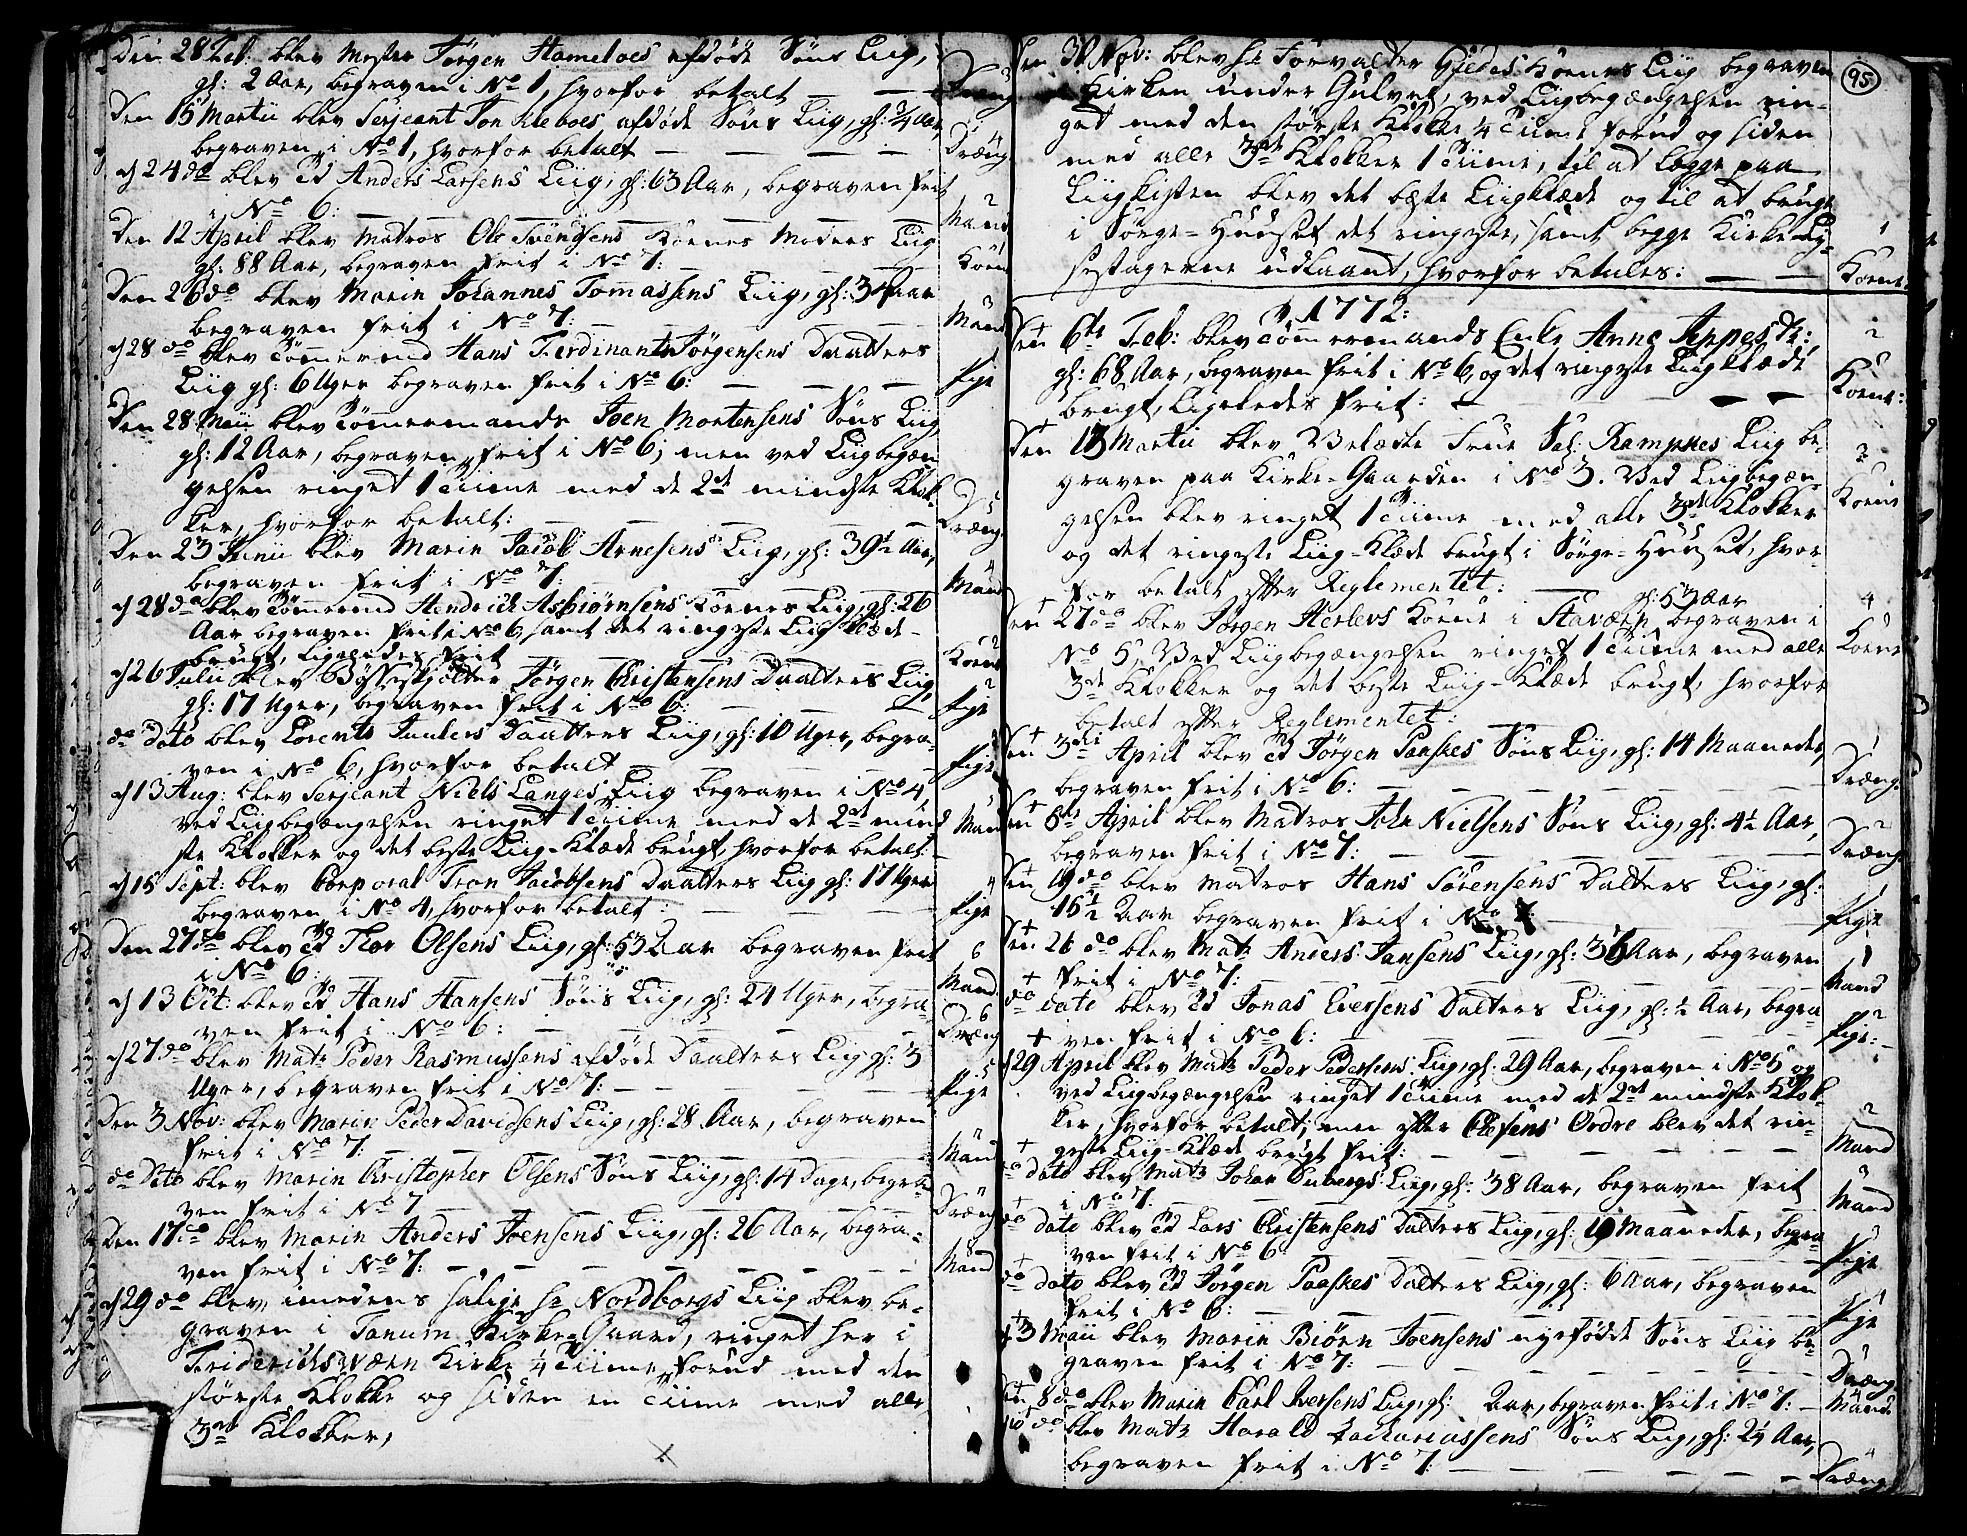 Den 28 Feb: blev Mester Jørgen Hameloes afdøde Søns Liig,
gl: 2 Aar, begraven i No 1, hvorfor betalt
Den 15 Martii blev Serjeant Jon Kleboes afdøde Søns Liig, gl: 3/4 Aar,
begraven i No 1, hvorfor betalt Dræng
d 24 do blev Td Anders Larsens Liig, gl: 63 Aar, begraven frit
i No 6: Mand
Den 12 April blev Matros Ole Svendsens Koenes Moders Liig
gl: 88 Aar, begraven frit i No 7: Koene
Den 26 do blev Marin Johannes Tomassens Liig, gl: 34 Aar
begraven frit i No 7: Mand
d 28 do blev Tømmermd Hans Ferdinant Jørgensens Daatters
Liig gl: 6 Uger begraven frit i No 6: Pige
Den 28 Maii blev Tømermands Joen Mortensens Søns Liig,
gl: 12 Aar, begraven frit i No 6; men ved Liigbegæn-
gelsen ringet 1 Tiime med de 2de mindste Klok-
ker, hvorfor betalt: Dræng
Den 23 Junii blev Marin Jacob Arnesens Liig, gl: 39 1/2 Aar,
begraven frit i No 7: Mand
d 28 do blev Tømermd Hendrich Asbiørnsens Koenes Liig, gl: 26
Aar begraven frit i No 6 samt det ringeste Liig-Klæde
brugt, ligeledes frit Koene
d 26 Julii blev Bøsseskjefter Jørgen Christensens Daatters Liig
gl: 17 Uger, begraven frit i No 6: Pige
do Dato blev Lorents Daatters Liig, gl: 10 Uger, begra-
ven i No 6, hvorfor betalt Pige
d 13 Aug: blev Serjeant Niels Langes Liig begraven i No 4
ved Liigbegængelsen ringet 1 Tiime med de 2de mind-
ste Klokker og det beste Liig-Klæde brugt, hvorfor betalt: Mand
d 15 Sept: blev Corporal Tron Jacobsens Daatters Liig gl: 17 Uger
begraven i No 4, hvorfor betalt: Pige
Den 27 do blev Td Thor Olsens Liig, gl: 53 Aar begraven frit
i No 6: Mand
d 13 Oct: blev Td Hans Hansens Søns Liig, gl: 24 Uger, begra-
ven frit i No 6: Dræng
d 27 do blev Matr Peder Rasmussens afdøde Daatters Liig, gl: 3
Uger, begraven frit i No 7: Pige
Den 3 Nov: blev Marin Peder Davidsens Liig, gl: 28 Aar, begraven
frit i No 7: Mand
do Dato blev Marin Christopher Olsens Søns Liig, gl: 14 Dage, begra-
ven frit i No 7 Dræng
Den 17 do blev Marin Anders Joensens Liig, gl: 26 Aar, begra-
ven frit i No 7: Mand
d 29 do blev, imedens salige Hr Nordborgs Liig blev be-
graven i Tanum Kirke-Gaard, ringet her i
Friderichswærn Kirke 1/4 Tiime forud med den
største Klokke og siden en Tiime med alle
3de Klokker,
95
Den 30 Nov: blev Hr Forvalter Gjedes Koenes Liig begraven
i Kirken under Gulvet, ved Liigbegængelsen rin-
get med den største Klokke 1/4 Tiime forud og siden
med alle 3de Klokker 1 Tiime, til at legge paa
Liigkisten blev det beste Liigklæde og til at bruge
i Sørge-Huuset det ringeste, samt begge Kirke-Ly-
sestagerne udlaant, hvorfor betales: Koene
1772:
Den 6te Feb: blev Tømmermands Enke Anne Jeppes dr:
gl: 68 Aar, begraven frit i No 6, og det ringeste Liigklæde
brugt, ligeledes frit: Koene:
Den 13 Martii blev Velædle Frue Sal: Rampkes Liig be-
graven paa Kirke-Gaarden i No 3. Ved Liigbegæn-
gelsen blev ringet 1 Tiime med alle 3de Klokker
og det ringeste Liig-Klæde brugt i Sørge-Huuset, hvor-
for betalt efter Reglementet: Koene
gl: 53 Aar
Den 27 do blev Jørgen Herlevs Koene i Stavern begraven i
No 5, Ved Liigbegængelsen ringet 1 Tiime med alle
3de Klokker og det beste Liig-Klæde brugt, hvorfor
betalt efter Reglementet: Koene
Den 3die April blev Td Jørgen Paaskes Søns Liig, gl: 14 Maaneder,
begraven frit i No 6: Dræng
Den 8de April blev Matros John Nielsens Søns Liig, gl: 4 1/2 Aar,
begraven frit i No 7: Dræng
Den 19 do blev Matros Hans Sørensens Datters Liig, gl:
15 1/2 Aar begraven frit i No 7: Pige
Den 26 do blev Matr Anders Jansens Liig, gl: 36 Aar, begraven
frit i No 7: Mand
do dato blev Td Jonas Eversens Datters Liig, gl: 1/2 Aar, begra-
ven frit i No 6: Pige:
d 29 April blev Matr Peder Pedersens Liig, gl: 29 Aar, begraven i No 5 og
ved Liigbegængelsen ringet 1 Tiime med de 2de mindste Klok-
ker, hvorfor betalt; men efter Chefens Ordre blev det rin-
geste Liig-Klæde brugt frit: Mand
do dato blev Matr Johan Liig, gl: 38 Aar, begraven frit
i No 7: Mand
do dato blev Td Lars Christensens Datters Liig, gl: 19 Maaneder, begra-
ven frit i No 6 Pige
do dato blev Td Jørgen Paaskes Datters Liig, gl: 6 Aar, begraven
frit i No 6: Pige
d 3 Maii blev Marin Biørn Joensens nyefødde Søns Liig be-
graven frit i No 7: Dræng
Den 8 do blev Marin Carl Iversens Liig, gl: Aar, begraven frit i No 7: Mand
10 do blev Matr Harald Zachariassens Søns Liig, gl: 2 1/2 Aar,
begraven frit i No 7: Dræng